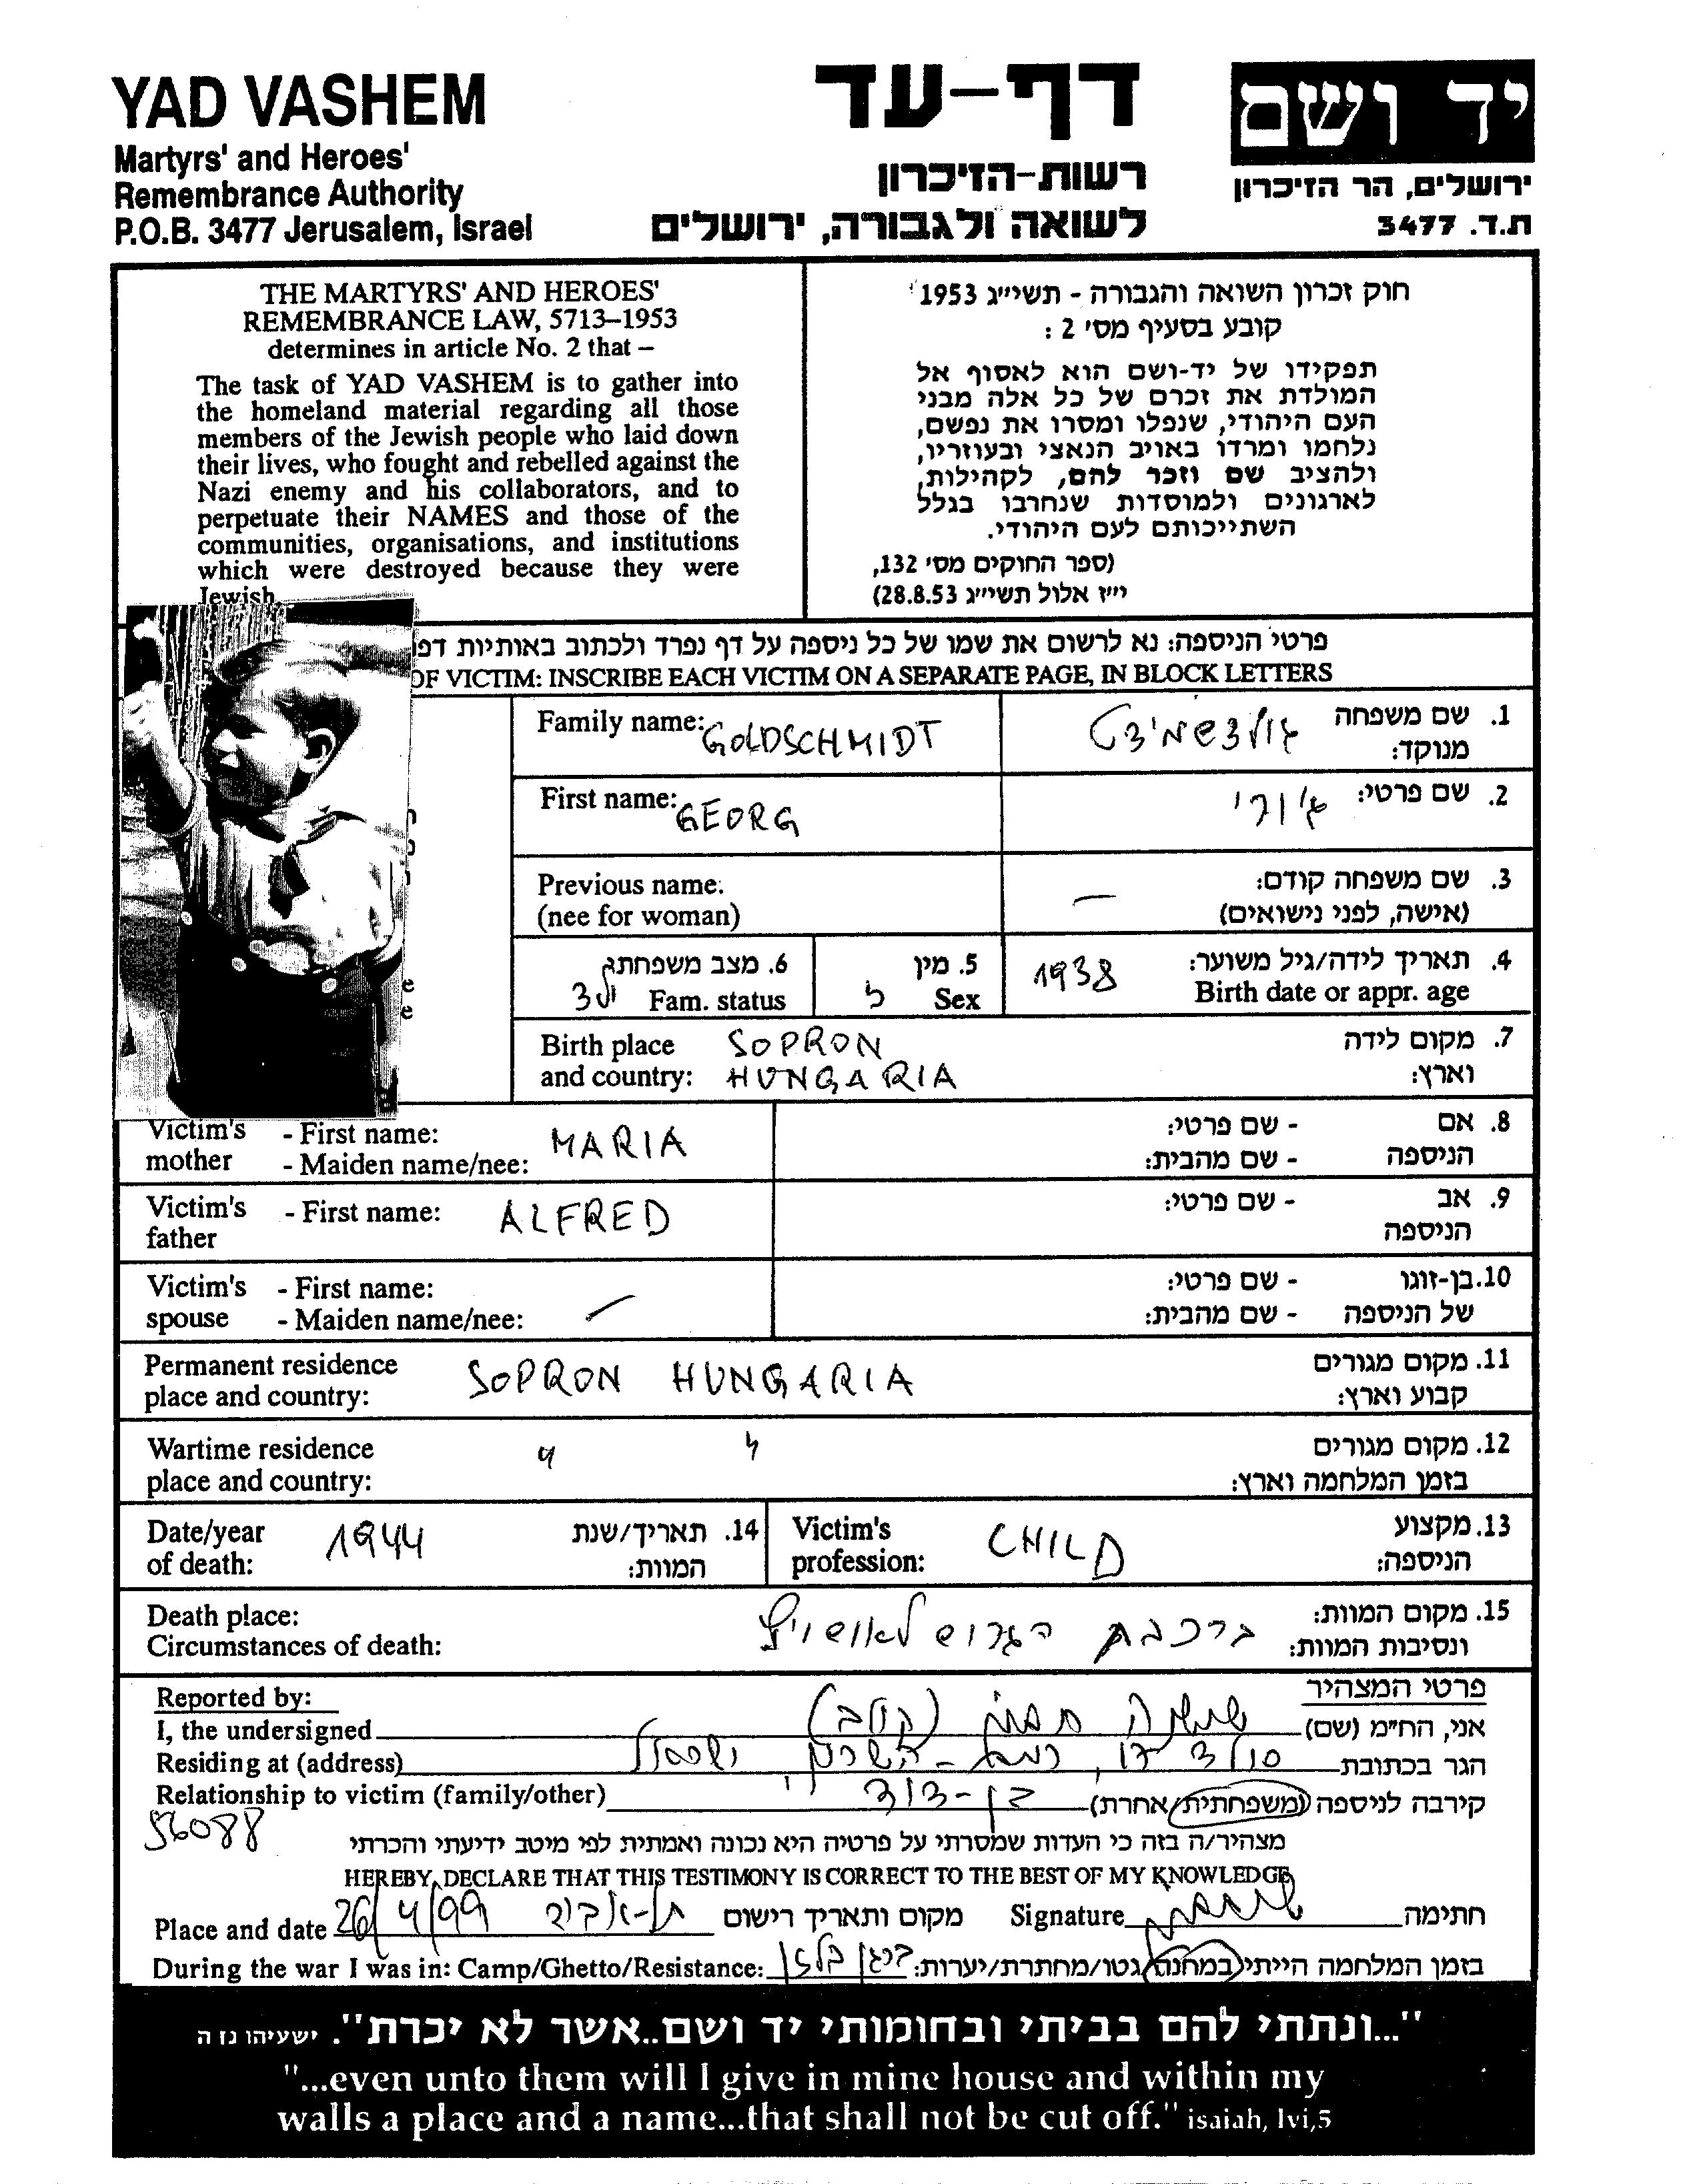 YAD VASHEM
Martyrs' and Heroes'
Remembrance Authority
P.O.B. 3477 Jerusalem, Israel
דף-עד
רשות-הזיכרון
לשואה ולגבורה, ירושלים
יד ושם
ירושלים, הר הזיכרון
ת.ד. 3477
THE MARTYRS' AND HEROES'
REMEMBRANCE LAW, 5713–1953
determines in article No. 2 that –
The task of YAD VASHEM is to gather into
the homeland material regarding all those
members of the Jewish people who laid down
their lives, who fought and rebelled against the
Nazi enemy and his collaborators, and to
perpetuate their NAMES and those of the
communities, organisations, and institutions
which were destroyed because they were
Jewish
חוק זכרון השואה והגבורה - תשי״ג 1953
קובע בסעיף מס׳ 2 :
תפקידו של יד-ושם הוא לאסוף אל
המולדת את זכרם של כל אלה מבני
העם היהודי, שנפלו ומסרו את נפשם,
נלחמו ומרדו באויב הנאצי ובעוזריו,
ולהציב שם וזכר להם, לקהילות,
לארגונים ולמוסדות שנחרבו בגלל
השתייכותם לעם היהודי.
(ספר החוקים מס׳ 132,
י״ז אלול תשי״ג 28.8.53)
פרטי הניספה: נא לרשום את שמו של כל ניספה על דף נפרד ולכתוב באותיות דפ
OF VICTIM: INSCRIBE EACH VICTIM ON A SEPARATE PAGE, IN BLOCK LETTERS
Family name: GOLDSCHMIDT
1. שם משפחה גולדשמידט
מנוקד:
First name: GEORG
2. שם פרטי: גיורי
Previous name:
(nee for woman)
3. שם משפחה קודם: —
(אישה, לפני נישואים)
4. תאריך לידה/גיל משוער: 1938
Birth date or appr. age
5. מין
Sex ז
6. מצב משפחתי
Fam. status ילד
Birth place SOPRON
and country: HUNGARIA
7. מקום לידה
וארץ:
Victim's - First name: MARIA
mother - Maiden name/nee:
8. אם - שם פרטי:
הניספה - שם מהבית:
Victim's - First name: ALFRED
father
9. אב - שם פרטי:
הניספה
Victim's - First name:
spouse - Maiden name/nee: —
10. בן-זוגו - שם פרטי:
של הניספה - שם מהבית:
Permanent residence SOPRON HUNGARIA
place and country:
11. מקום מגורים
קבוע וארץ:
Wartime residence " "
place and country:
12. מקום מגורים
בזמן המלחמה וארץ:
Date/year 1944
of death:
14. תאריך/שנת
המוות:
Victim's CHILD
profession:
13. מקצוע
הניספה:
Death place:
Circumstances of death:
15. מקום המוות: ברכבת הגרוש לאושויץ
ונסיבות המוות:
Reported by:
פרטי המצהיר
I, the undersigned
אני, הח״מ (שם)
Residing at (address)
הגר בכתובת ישראל
Relationship to victim (family/other)
קירבה לניספה (משפחתית/אחרת) בן-דוד
56088
מצהיר/ה בזה כי העדות שמסרתי על פרטיה היא נכונה ואמתית לפי מיטב ידיעתי והכרתי
HEREBY DECLARE THAT THIS TESTIMONY IS CORRECT TO THE BEST OF MY KNOWLEDGE
Place and date 26/4/99 תל-אביב מקום ותאריך רישום
Signature חתימה
During the war I was in: Camp/Ghetto/Resistance:
בזמן המלחמה הייתי במחנה/גטו/מחתרת/יערות: ברגן בלזן
"...ונתתי להם בביתי ובחומותי יד ושם..אשר לא יכרת". ישעיהו נז ה
"...even unto them will I give in mine house and within my
walls a place and a name...that shall not be cut off." isaiah, lvi,5